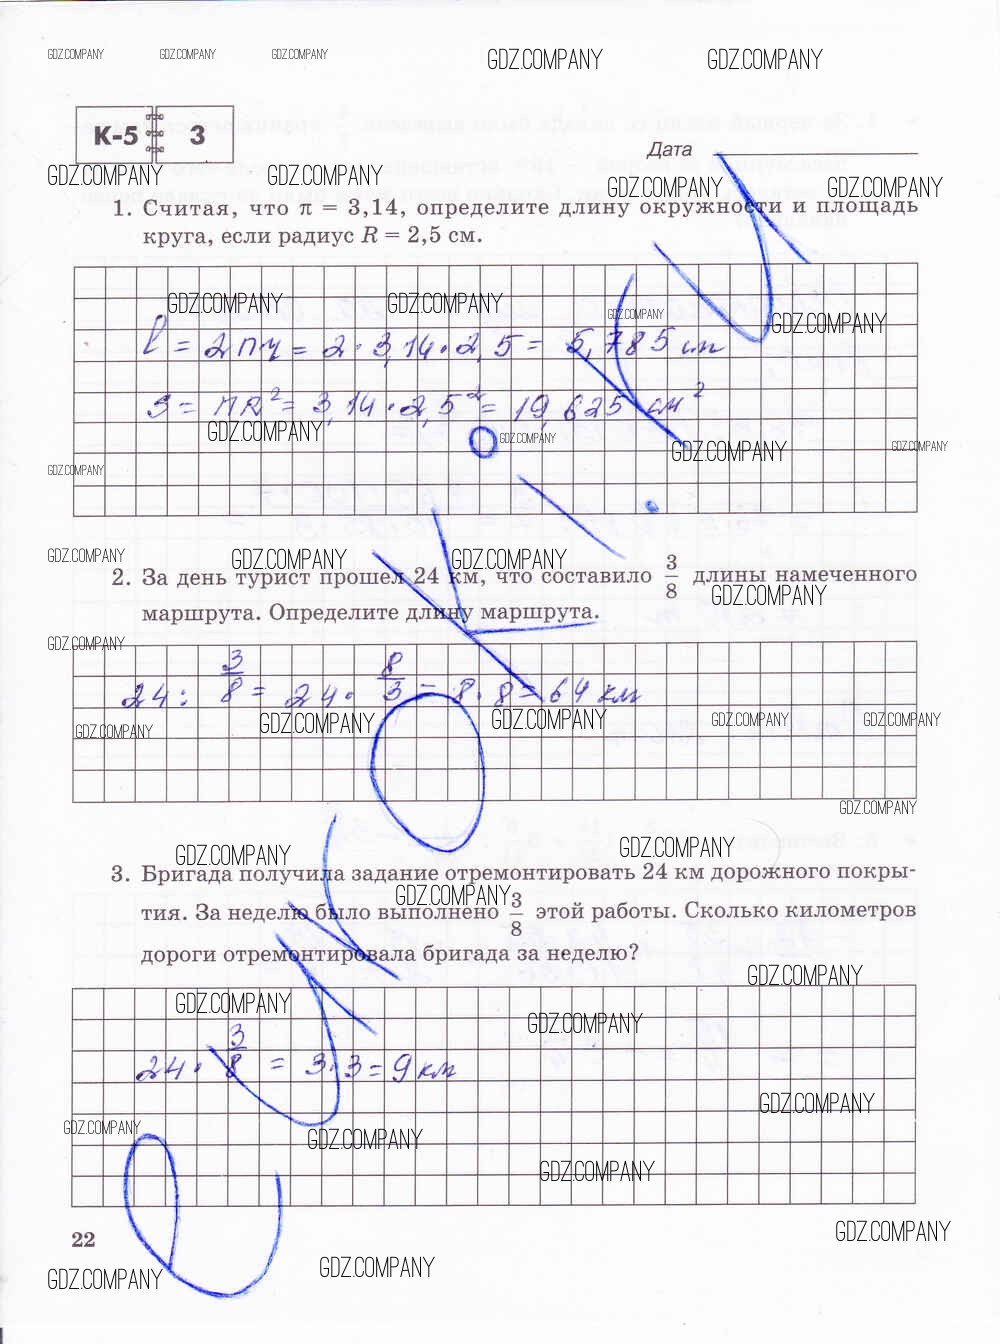 GDZ.COMPANY GDZ.COMPANY GDZ.COMPANY GDZ.COMPANY GDZ.COMPANY
К-5 3
Дата
GDZ.COMPANY GDZ.COMPANY GDZ.COMPANY GDZ.COMPANY
1. Считая, что π = 3,14, определите длину окружности и площадь
круга, если радиус R = 2,5 см.
GDZ.COMPANY GDZ.COMPANY GDZ.COMPANY GDZ.COMPANY
l = 2πч = 2 · 3,14 · 2,5 = 5,785 см
S = πR² = 3,14 · 2,5² = 19,625 см²
GDZ.COMPANY GDZ.COMPANY GDZ.COMPANY GDZ.COMPANY
GDZ.COMPANY
GDZ.COMPANY GDZ.COMPANY GDZ.COMPANY
2. За день турист прошел 24 км, что составило 3/8 длины намеченного
GDZ.COMPANY
маршрута. Определите длину маршрута.
GDZ.COMPANY
24 : 3/8 = 24 · 8/3 = 8 · 8 = 64 км
GDZ.COMPANY GDZ.COMPANY GDZ.COMPANY GDZ.COMPANY GDZ.COMPANY
GDZ.COMPANY
GDZ.COMPANY GDZ.COMPANY
3. Бригада получила задание отремонтировать 24 км дорожного покры-
GDZ.COMPANY
тия. За неделю было выполнено 3/8 этой работы. Сколько километров
дороги отремонтировала бригада за неделю?
GDZ.COMPANY
GDZ.COMPANY GDZ.COMPANY
24 · 3/8 = 3 · 3 = 9 км
GDZ.COMPANY
GDZ.COMPANY GDZ.COMPANY
GDZ.COMPANY
22
GDZ.COMPANY
GDZ.COMPANY GDZ.COMPANY